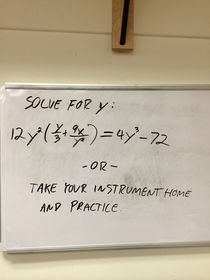 SOLVE FOR Y:
12y²(y/3 + 9x/y²) = 4y³ - 72
- OR -
TAKE YOUR INSTRUMENT HOME
AND PRACTICE.